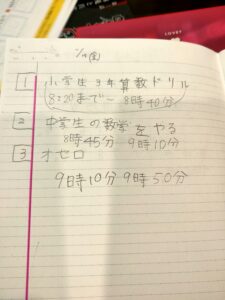 1/19(金)
1 小学生3年算数ドリル
(8:20まで〜8時40分)
2 中学生の数学をやる
8時45分 9時10分
3 オセロ
9時10分 9時50分